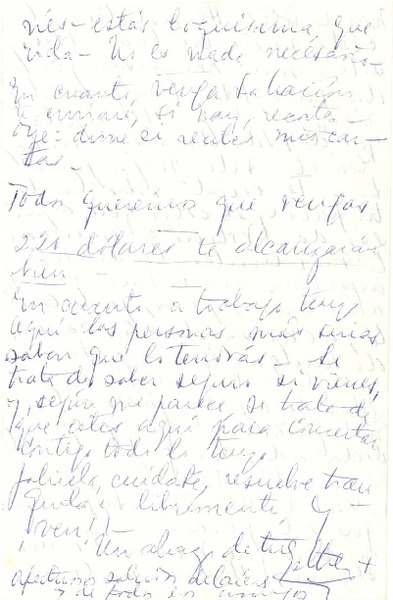 nés - estás loquísima, que
vida - No es nada necesario -
En cuanto venga
te enviaré, si hay, recorta-
Oye: dime si recibes mis car-
tas -
Todos queremos que vengas
220 dólares te alcanzarán
bien -
En cuanto a trabajo tengo
aquí las personas más serias
saben que lo tendrás - Se
trata de saber seguro si vienes,
y, según me parece, se trata de
que estés aquí para concertar
contigo todo lo
cuídate, resuelve tran
quila, libremente y -
ven! -
Un abrazo de tu +
afectuoso
y de todos los amigos